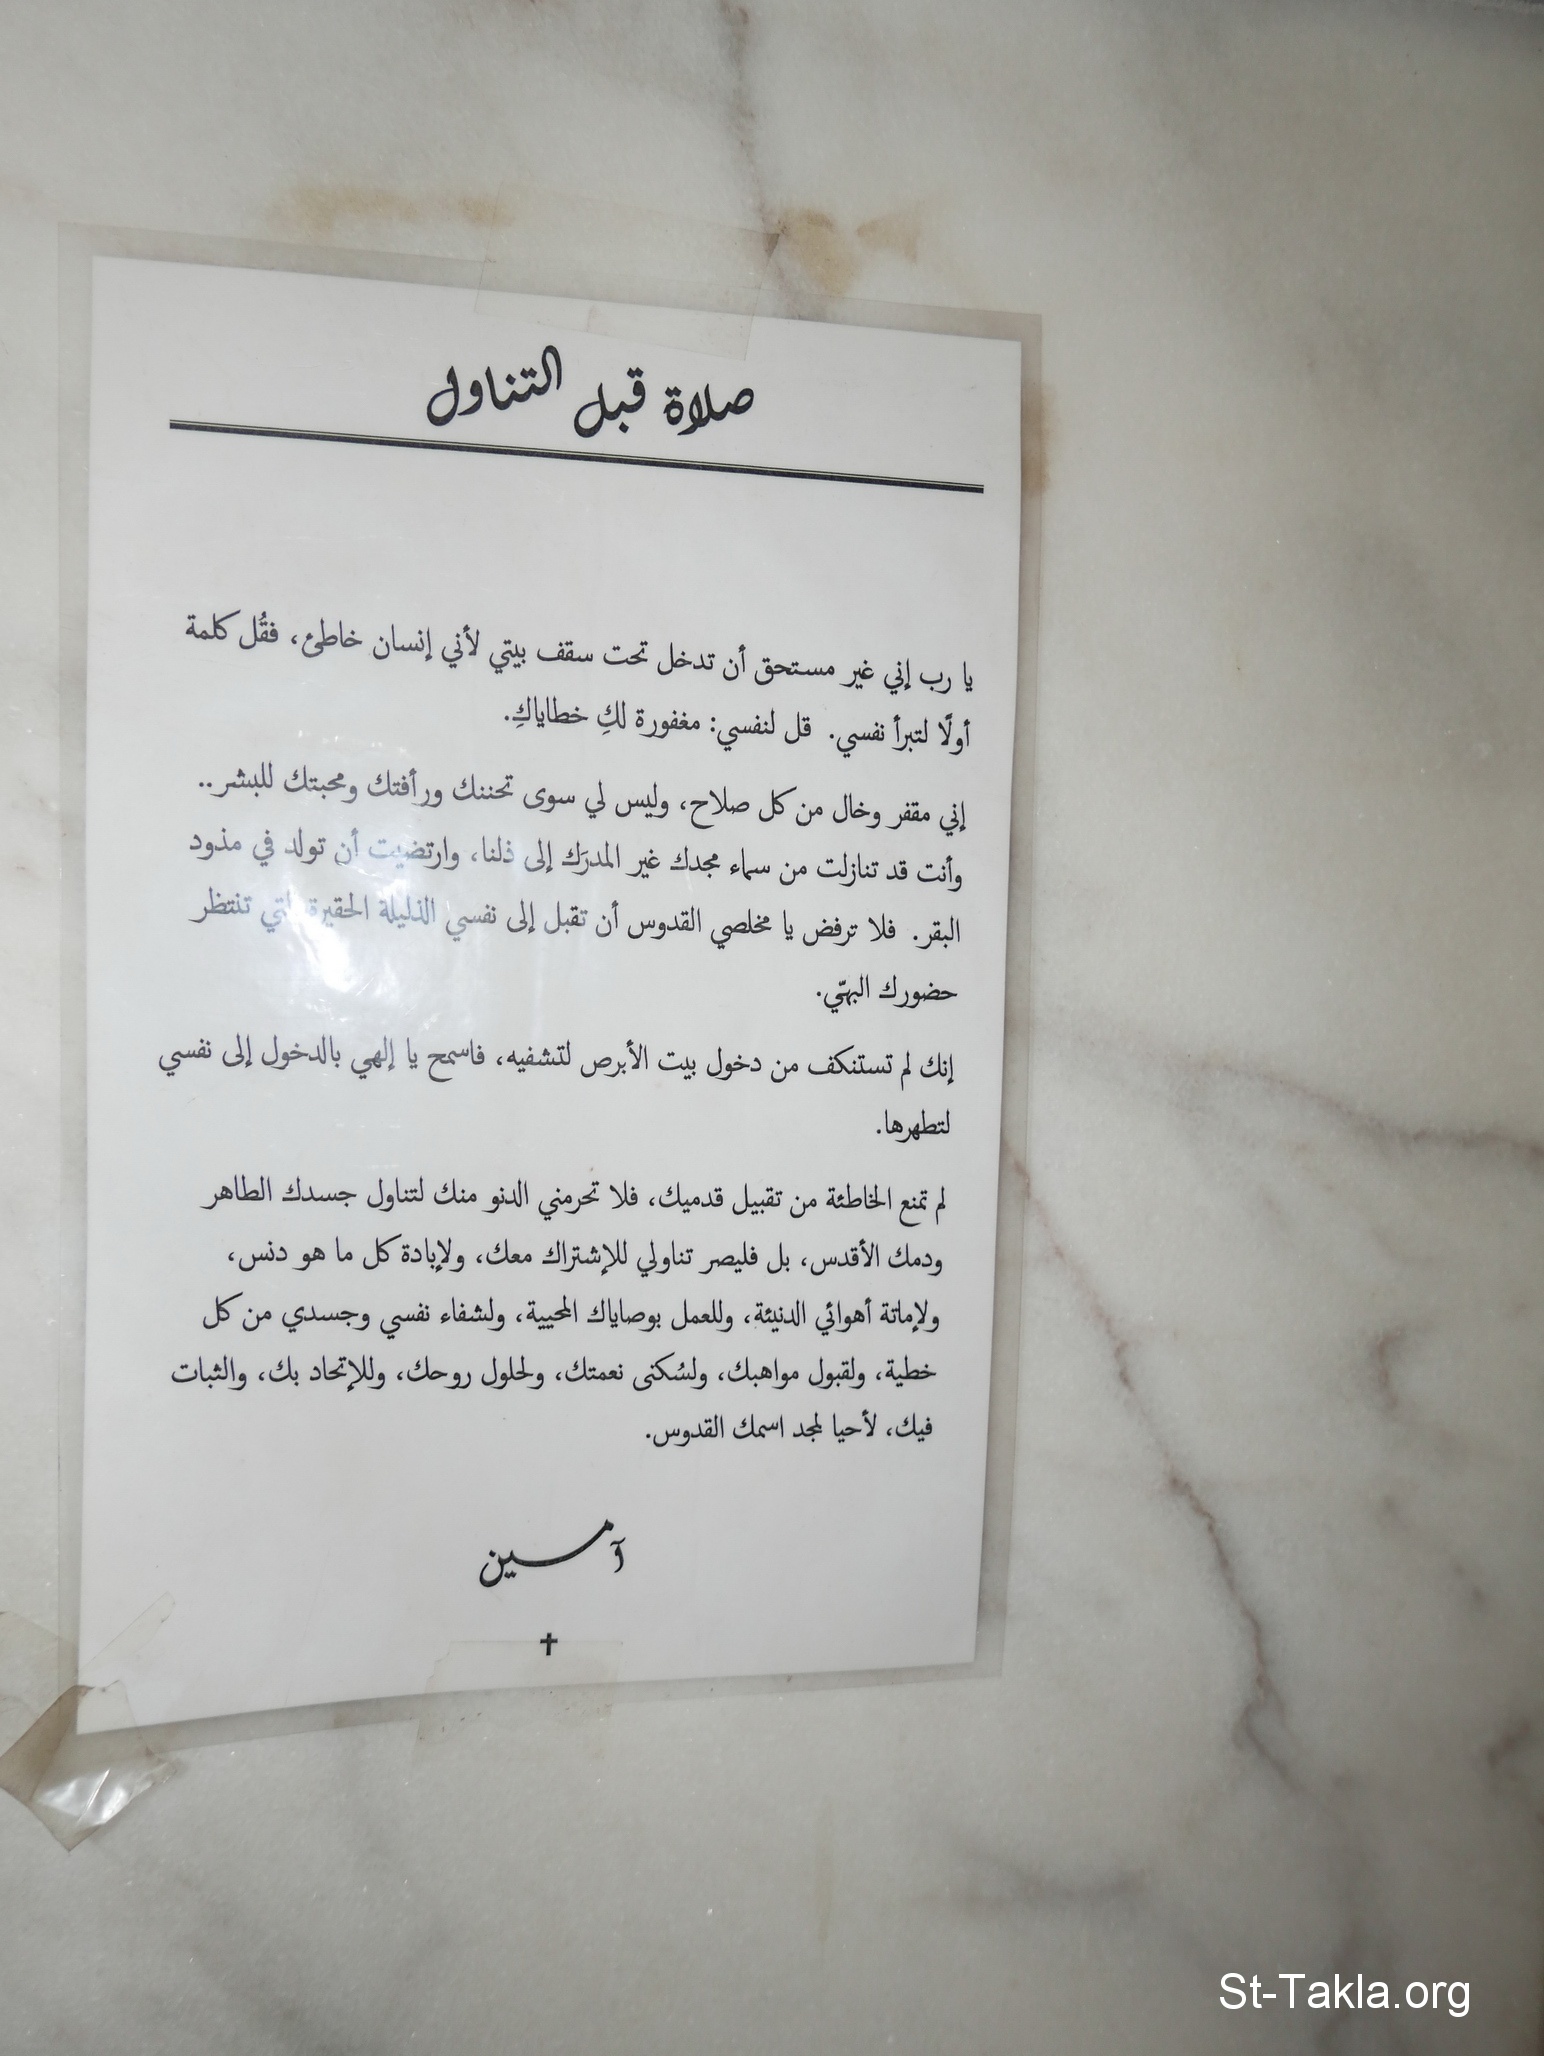 صلاة قبل التناول
يا رب إني غير مستحق أن تدخل تحت سقف بيتي لأني إنسان خاطئ، فقُل كلمة
أولًا لتبرأ نفسي. قل لنفسي: مغفورة لكِ خطاياكِ.
إني مقفر وخال من كل صلاح، وليس لي سوى تحننك ورأفتك ومحبتك للبشر..
وأنت قد تنازلت من سماء مجدك غير المدرَك إلى ذلنا، وارتضيت أن تولد في مذود
البقر. فلا ترفض يا مخلصي القدوس أن تقبل إلى نفسي الذليلة الحقيرة التي تنتظر
حضورك البهيّ.
إنك لم تستنكف من دخول بيت الأبرص لتشفيه، فاسمح يا إلهي بالدخول إلى نفسي
لتطهرها.
لم تمنع الخاطئة من تقبيل قدميك، فلا تحرمني الدنو منك لتناول جسدك الطاهر
ودمك الأقدس، بل فليصر تناولي للإشتراك معك، ولإبادة كل ما هو دنس،
ولإماتة أهوائي الدنيئة، وللعمل بوصاياك المحيية، ولشفاء نفسي وجسدي من كل
خطية، ولقبول مواهبك، ولسُكنى نعمتك، ولحلول روحك، وللإتحاد بك، والثبات
فيك، لأحيا لمجد اسمك القدوس.
آمــين
St-Takla.org